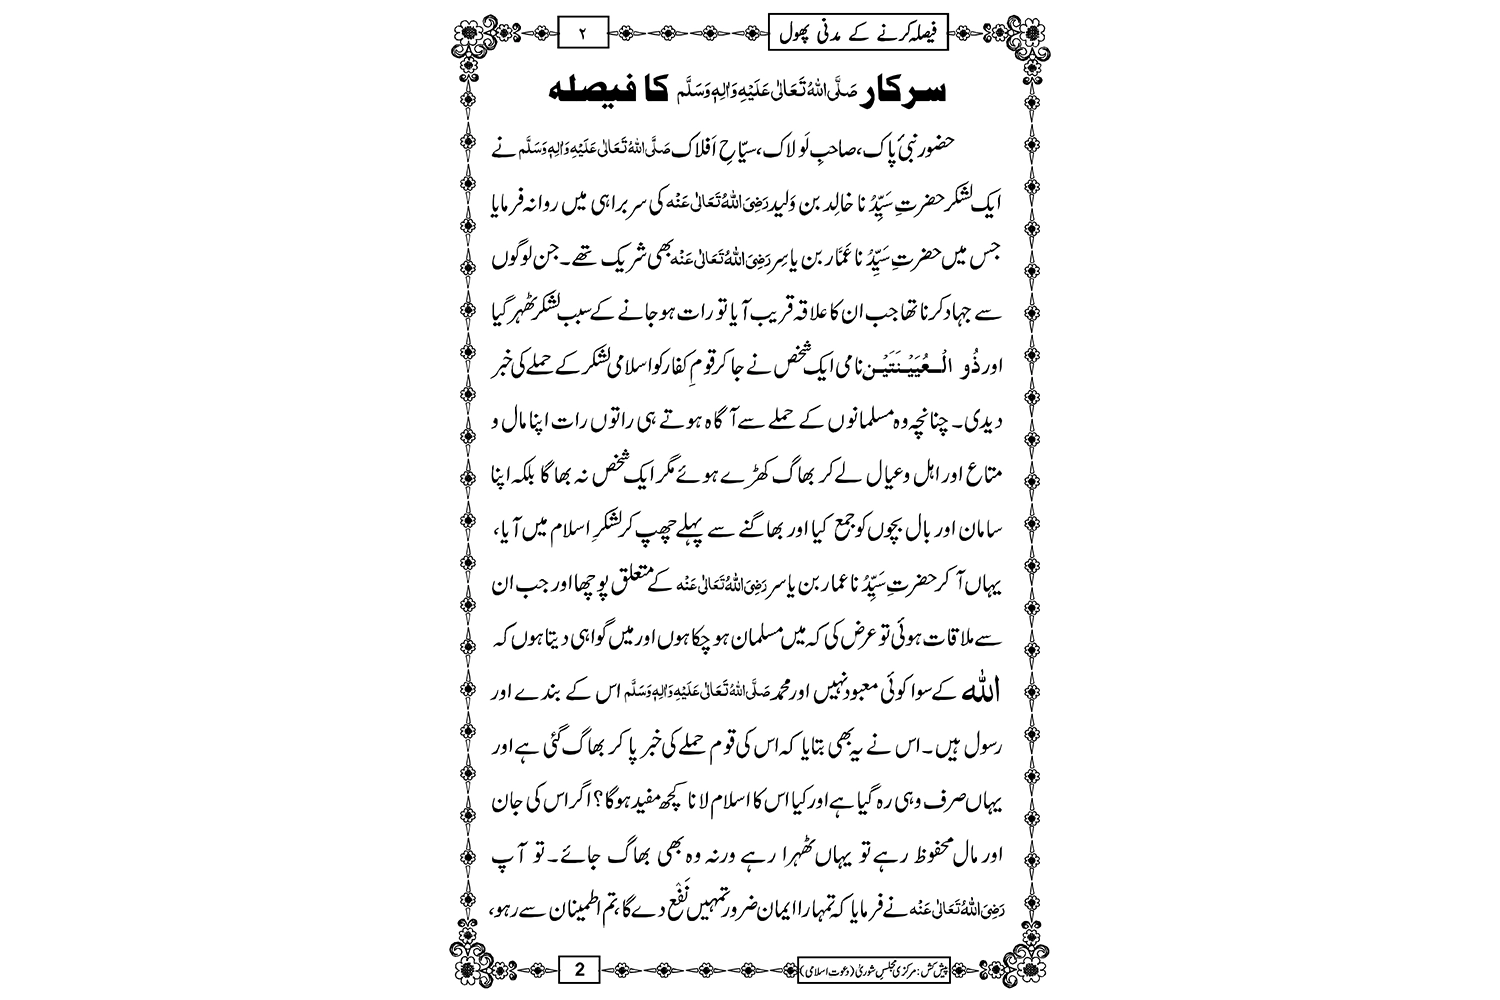 فیصلہ کرنے کے مدنی پھول
۲
سرکار صَلَّی اللّٰہُ تَعَالٰی عَلَیْہِ وَاٰلِہٖ وَسَلَّم کا فیصلہ
حضور نبیٔ پاک، صاحبِ لَولاک، سیّاحِ اَفلاک صَلَّی اللّٰہُ تَعَالٰی عَلَیْہِ وَاٰلِہٖ وَسَلَّم نے
ایک لشکر حضرتِ سَیِّدُنا خالِد بن وَلید رَضِیَ اللّٰہُ تَعَالٰی عَنْہ کی سربراہی میں روانہ فرمایا
جس میں حضرتِ سَیِّدُنا عَمَّار بن یاسِر رَضِیَ اللّٰہُ تَعَالٰی عَنْہ بھی شریک تھے۔ جن لوگوں
سے جہاد کرنا تھا جب ان کا علاقہ قریب آیا تو رات ہو جانے کے سبب لشکر ٹھہر گیا
اور ذُو الْعُیَیْنَتَیْن نامی ایک شخص نے جا کر قومِ کفار کو اسلامی لشکر کے حملے کی خبر
دیدی۔ چنانچہ وہ مسلمانوں کے حملے سے آگاہ ہوتے ہی راتوں رات اپنا مال و
متاع اور اہل و عیال لے کر بھاگ کھڑے ہوئے مگر ایک شخص نہ بھاگا بلکہ اپنا
سامان اور بال بچوں کو جمع کیا اور بھاگنے سے پہلے چھپ کر لشکرِ اسلام میں آیا،
یہاں آ کر حضرتِ سَیِّدُنا عمار بن یاسر رَضِیَ اللّٰہُ تَعَالٰی عَنْہ کے متعلق پوچھا اور جب ان
سے ملاقات ہوئی تو عرض کی کہ میں مسلمان ہو چکا ہوں اور میں گواہی دیتا ہوں کہ
اللہ کے سوا کوئی معبود نہیں اور محمد صَلَّی اللّٰہُ تَعَالٰی عَلَیْہِ وَاٰلِہٖ وَسَلَّم اس کے بندے اور
رسول ہیں۔ اس نے یہ بھی بتایا کہ اس کی قوم حملے کی خبر پا کر بھاگ گئی ہے اور
یہاں صرف وہی رہ گیا ہے اور کیا اس کا اسلام لانا کچھ مفید ہو گا؟ اگر اس کی جان
اور مال محفوظ رہے تو یہاں ٹھہرا رہے ورنہ وہ بھی بھاگ جائے۔ تو آپ
رَضِیَ اللّٰہُ تَعَالٰی عَنْہ نے فرمایا کہ تمہارا ایمان ضرور تمہیں نَفْع دے گا، تم اطمینان سے رہو،
پیش کش: مرکزی مجلسِ شوریٰ (دعوت اسلامی)
2